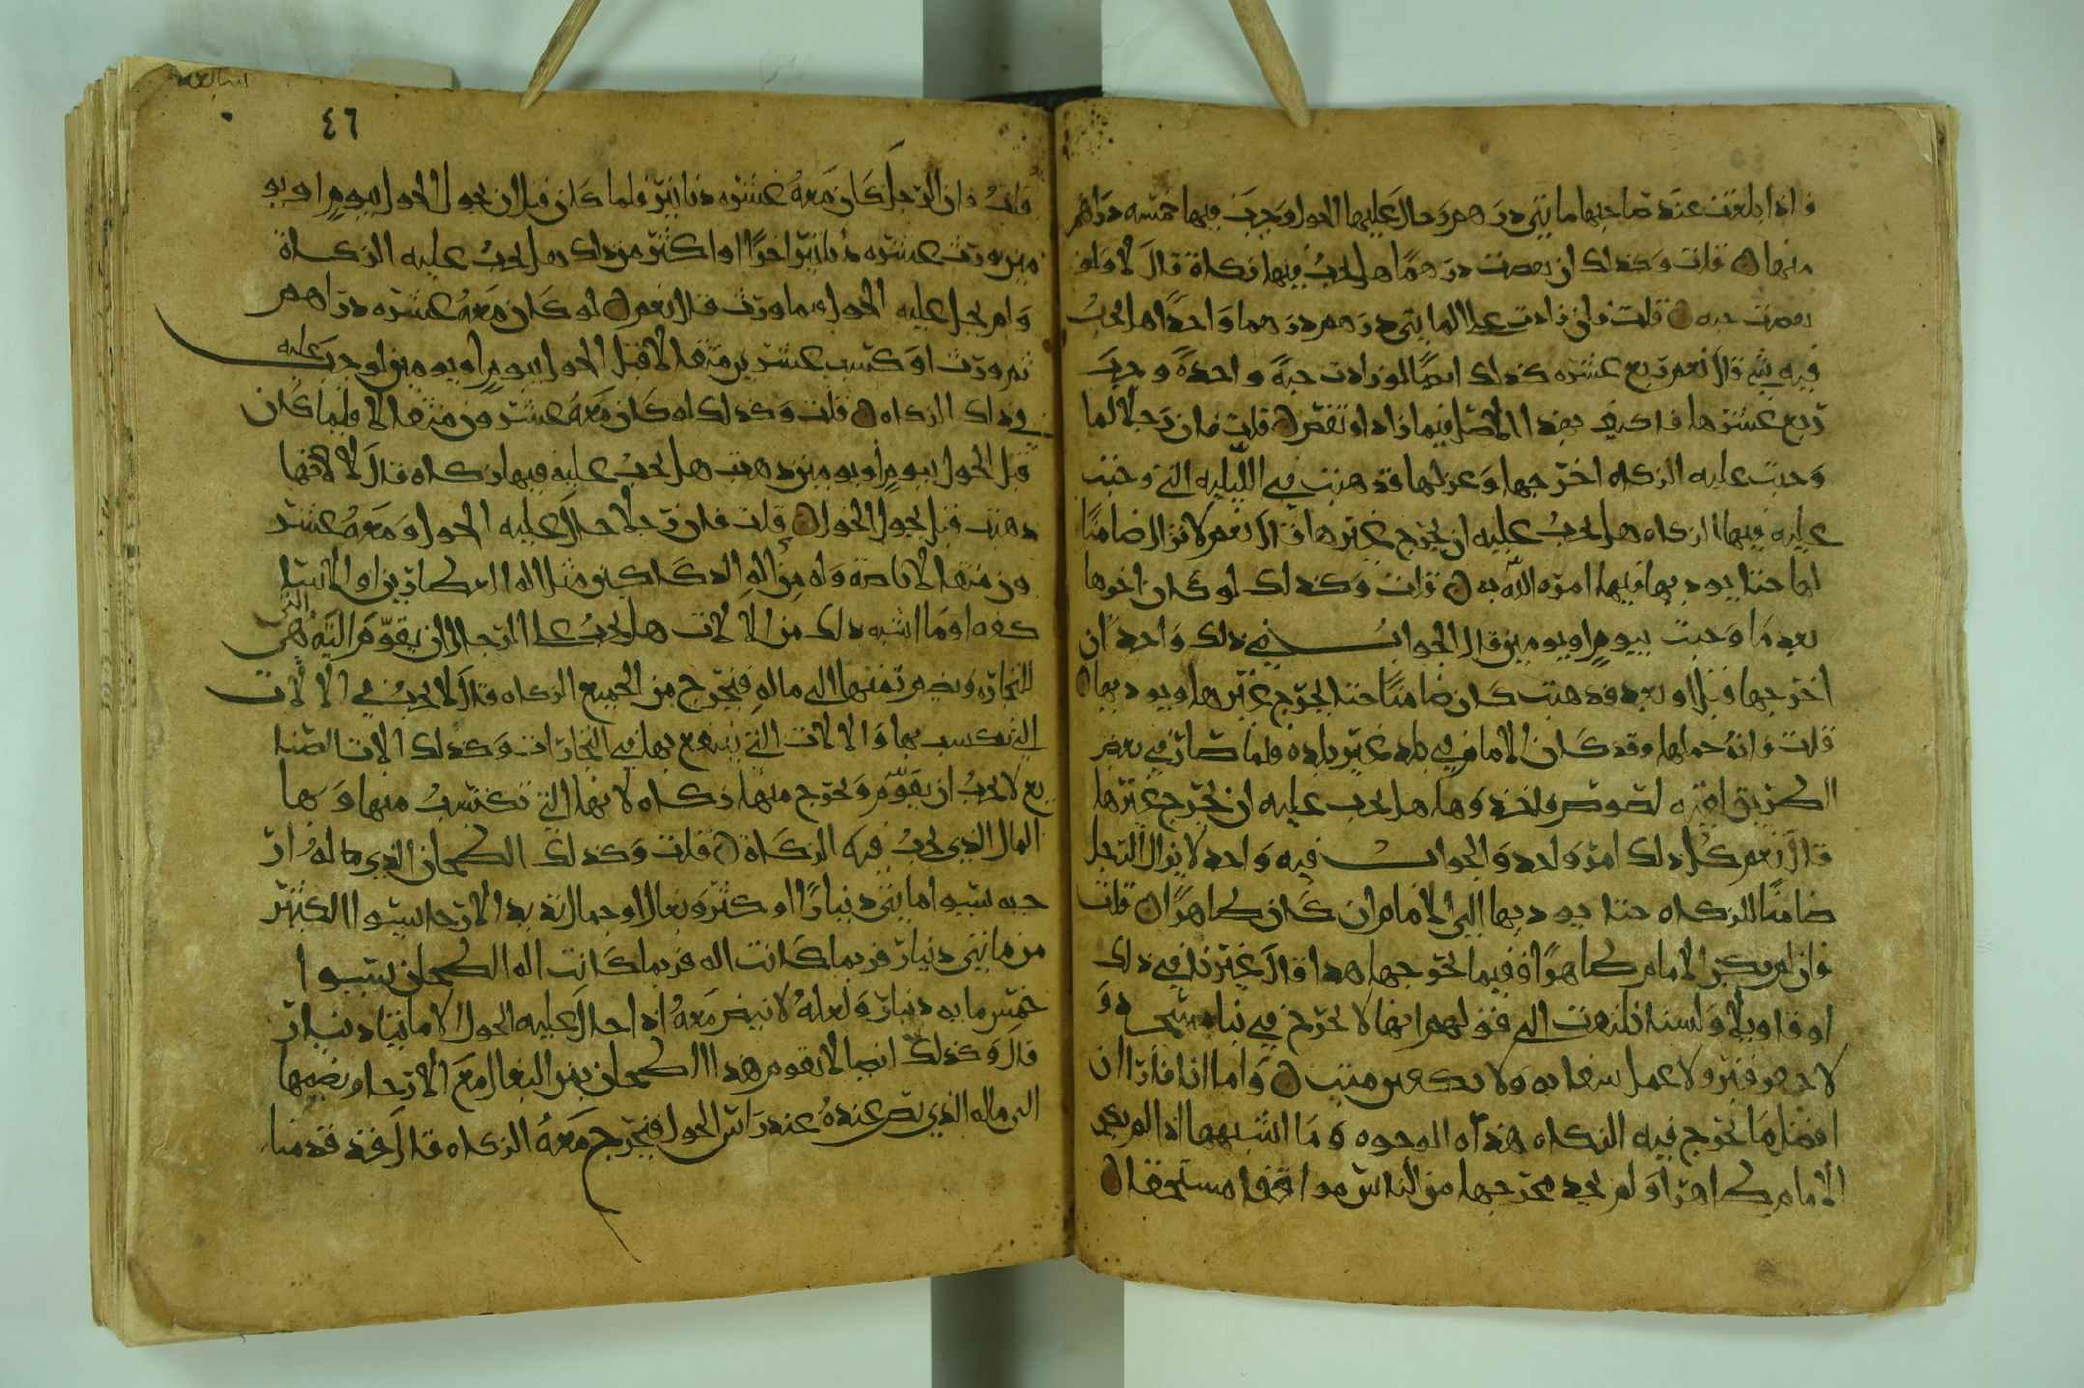 فاذا بلغت عند صاحبها مايتي درهم وحال عليها الحول وجب فيها خمسه دراهم
منها قلت وكذلك ان نقصت درهما هل يجب فيها زكاة قال لا ولو
نقصت حبه قلت فان زادت على المايتي درهم درهما واحدا هل يجب
فيه شي قال نعم ربع عشره كذلك ايضا لو زادت حبة واحدة وجب
ربع عشرها فاكتف بهذا الاصل فيما زاد او نقص قلت فان رجلا لما
وجبت عليه الزكاه اخرجها وعزلها فذهبت في الليله التي وجبت
عليه فيها الزكاه هل يجب عليه ان يخرج غيرها قال نعم لا يزال ضامنا
لها حتا يوديها فيما امره الله به قلت وكذلك لو كان اخرها
بعد ما وجبت بيوم او يومين قال الجواب في ذلك واحد ان
اخرجها قبل او بعد فذهبت كان ضامنا حتا يخرج غيرها ويوديها
قلت فانه حملها وقد كان الامام في بلد غير بلده فلما صار في بعض
الطريق لقيه لصوص فاخذوها هل يجب عليه ان يخرج غيرها
قال نعم كل ذلك امر واحد والجواب فيه واحد لا يزال الرجل
ضامنا للزكاه حتا يوديها الى الامام ان كان ظاهرا قلت
فان لم يكن الامام ظاهرا ففيما يخرجها هذا قال غيرنا في ذلك
اوقاويلا ولسنا نلتفت الى قولهم انها لا تخرج في بنا مسجد و
لا حفر قبر ولا عمل سقايه ولا تكفين ميت واما انا فارا ان
افضل ما تخرج فيه الزكاه هذه الوجوه وما اشبهها اذا لم يكن
الامام ظاهرا ولم يجد مخرجها من الناس موافقا مستحقا
٤٦
قلت فان الرجل كان معه عشره دنانير فلما كان قبل ان يحول الحول بيوم او يو
مين ورث عشره دنانير اخرا او اكثر من ذلك هل يجب عليه الزكاة
ولم يحل عليه الحول فيما ورث قال نعم لو كان معه عشره دراهم
ثم ورث او كسب عشرين مثقالا قبل الحول بيوم او يومين لوجب عليه
في ذلك الزكاه قلت وكذلك لو كان معه عشرون مثقالا فلما كان
قبل الحول بيوم او يومين ذهبت هل يجب عليه فيها زكاه قال لا لانها
ذهبت قبل يحول الحول قلت فان رجلا حال عليه الحول ومعه عشر
ون مثقالا ناضة وله من اله الدكاكين مثل اله العطارين او الات
او ما اشبه ذلك من الالات هل يجب على الرجل ان يقوم الته التي هي
للتجاره ويضم ثمنها الى ماله فيخرج من الجميع الزكاه قال لا يجب في الالات
التي يكسب بها والالات التي ينتفع بها في التجارات وكذلك الات الصنا
يع لا يجب ان يقوم ويخرج منها زكاه لانها التي تكتسب منها وبها
المال الذي يجب فيه الزكاة قلت وكذلك الطحان الذي ماله ار
حيه تسوا مايتي دينارا او كثر وبغالا او جمالا تدير الارحا يسوا الكثير
من مايتي دينار فربما كانت اله فربما كانت اله الطحان يسوا
خمس مايه دينار ولعله لا ينض معه اذا حال عليه الحول الا مايتا دينار
قال وكذلك ايضا لا تقوم هذا الطحان ثمن البغال مع الارحا ويضمها
الى ماله الذي نض عنده عند راس الحول فيخرج معه الزكاه قال قد قدمنا